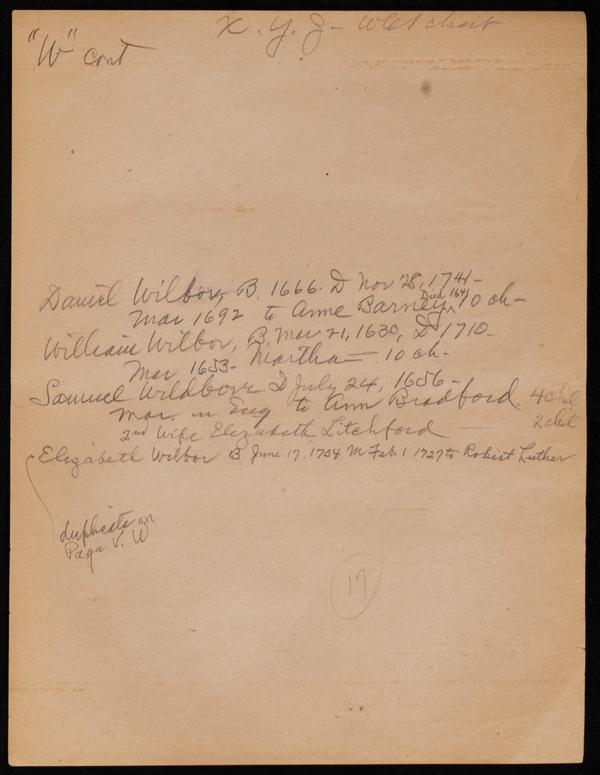 X. Y. Z - W on chart
"W" cont
Daniel Wilbor, B. 1666. D Nov 28, 1741-
Mar 1692 to Anne Barney, 10 ch-
William Wilbor, B. Mar 21, 1630, D 1710-
Mar 1653- Martha = 10 ch-
Samuel Wildbore D July 24, 1656-
Mar. in Eng to Ann Bradford. 4 chil
2nd Wife Elizabeth Litchford — 2 chil
Elizabeth Wilbor B June 17, 1704 M Feb 1 1727 to Robert Luther
duplicate on
Page V. W
17